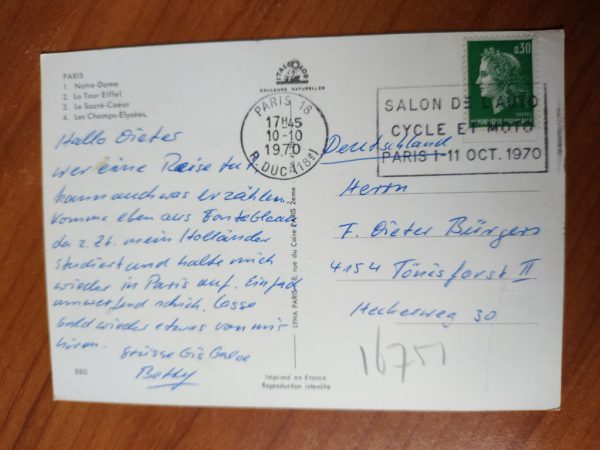 PARIS
1. Notre-Dame
2. La Tour Eiffel
3. Le Sacré-Coeur
4. Les Champs-Elysées.
COULEURS NATURELLES
0,30
PARIS 18
17H45
10-10
1970
R. DUC (18e)
SALON DE L'AUTO
CYCLE ET MOTO
PARIS 1-11 OCT. 1970
Hallo Dieter
wer eine Reise tut
kann auch was erzählen.
Komme eben aus
da z. Zt. mein Holländer
studiert und halte mich
wieder in Paris auf. Einfach
umwerfend schick. Lasse
bald wieder etwas von mir
hören.
Grüsse
Betty
Deutschland
Herrn
F. Dieter Bürgers
4154 Tönisforst II
30
16751
LYNA PARIS, 8, rue du Caire PARIS 2eme
880
Imprimé en France
Reproduction interdite